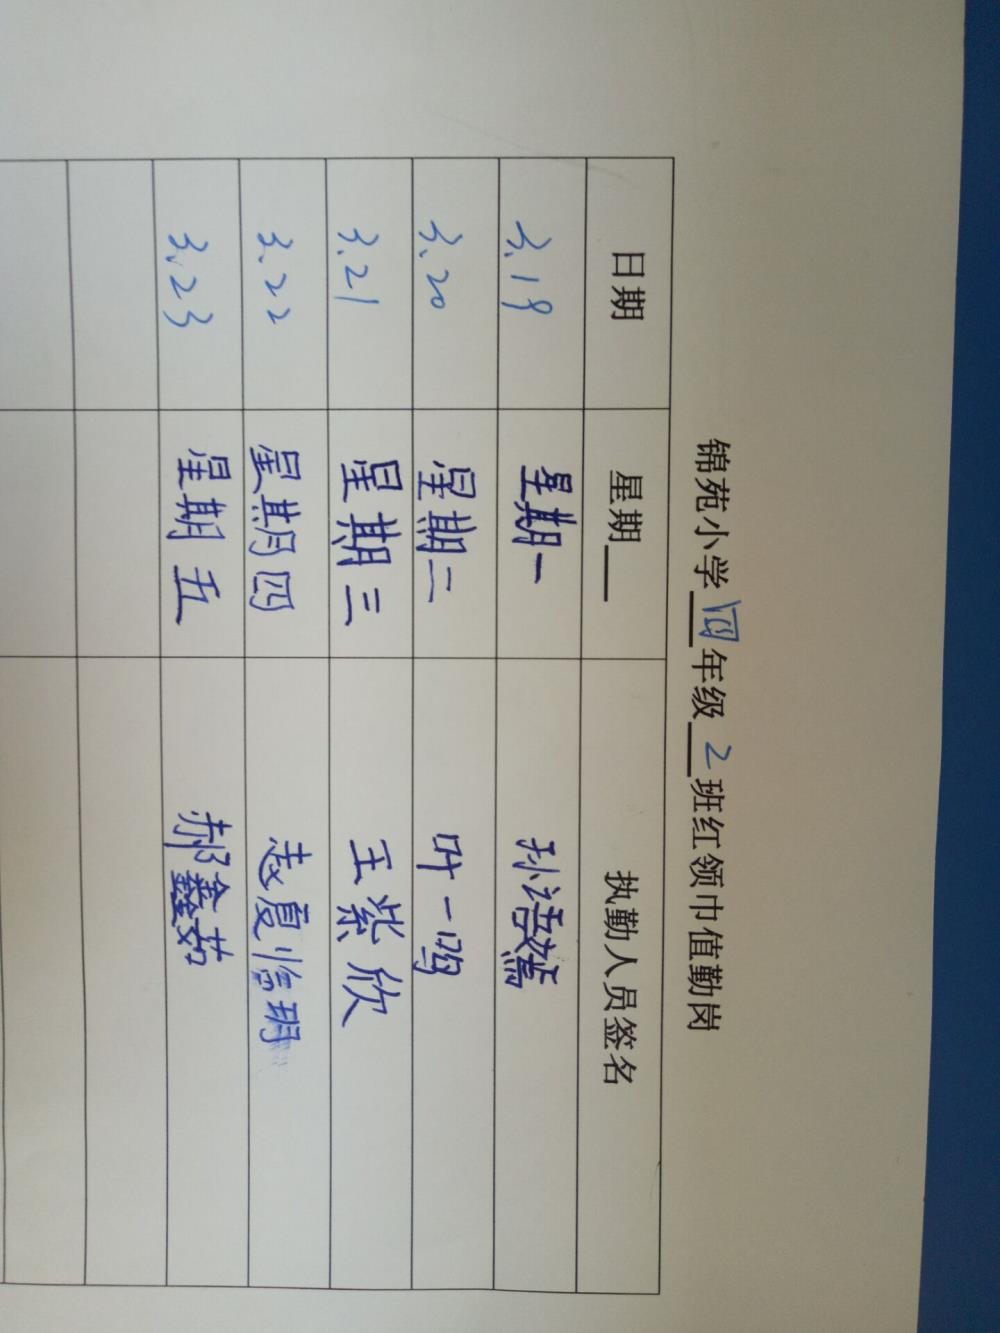 锦苑小学四年级2班红领巾值勤岗
日期 星期__ 执勤人员签名
3.19 星期一 孙语嫣
3.20 星期二 叶一鸣
3.21 星期三 王紫欣
3.22 星期四 赵夏
3.23 星期五 郝鑫茹